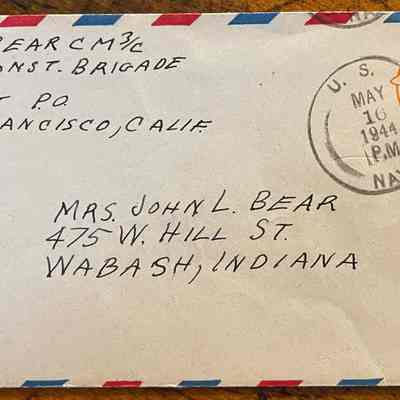 BEAR C M 3/C
ONST. BRIGADE
T P.O.
ANCISCO, CALIF.
U. S.
MAY
16
1944
P.M.
NA
MRS. JOHN L. BEAR
475 W. HILL ST.
WABASH, INDIANA